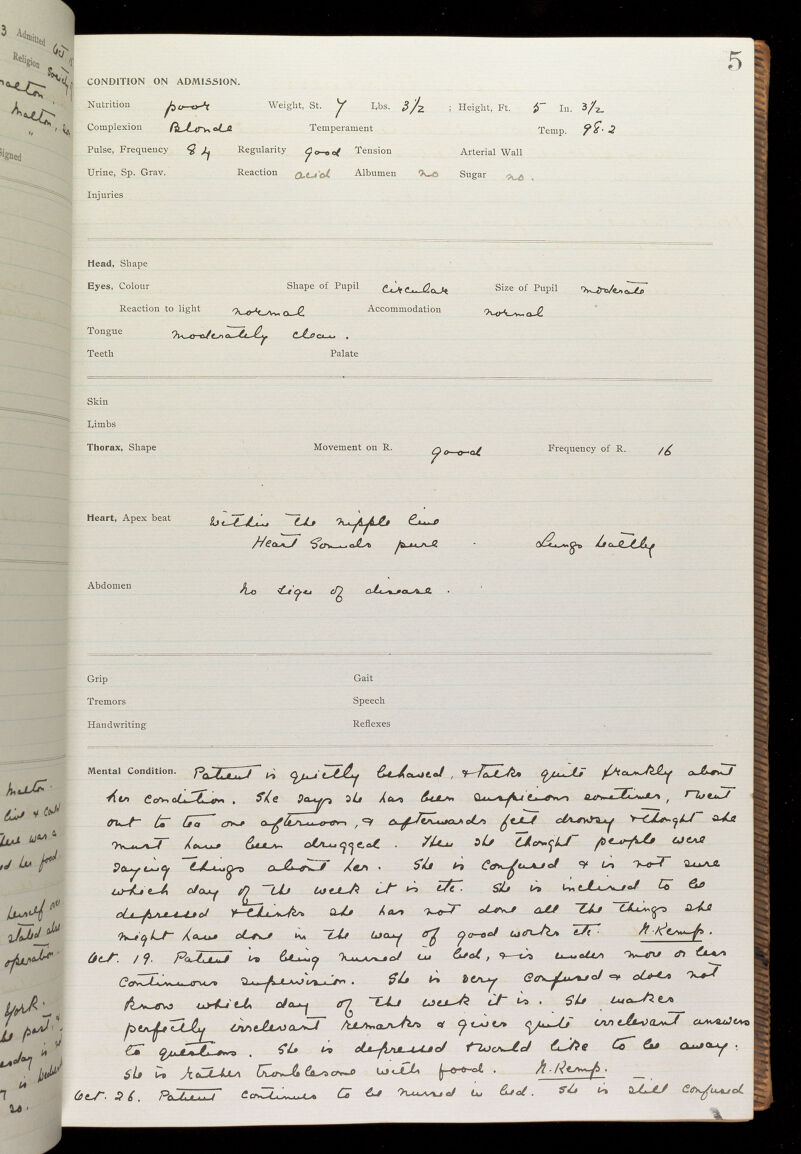 5
3 Admitted Oct
Religion Society
Malton.
Malton,
"
Signed
CONDITION ON ADMISSION.
Nutrition poor Weight, St. 7 Lbs. 3½ ; Height, Ft. 5 In. 3½
Complexion Blonde Temperament Temp. 98.2
Pulse, Frequency 84 Regularity good Tension Arterial Wall
Urine, Sp. Grav. Reaction acid Albumen no Sugar no.
Injuries
Head, Shape
Eyes, Colour Shape of Pupil circular Size of Pupil moderate
Reaction to light normal Accommodation normal
Tongue moderately clean.
Teeth Palate
Skin
Limbs
Thorax, Shape Movement on R. good Frequency of R. 16
Heart, Apex beat Within the nipple line
Heart Sounds pure. Lungs healthy
Abdomen No sign of disease.
Grip Gait
Tremors Speech
Handwriting Reflexes
Mental Condition. Patient is quietly behaved, & talks quite frankly about
her condition. She says she has been suspicious sometimes, & went
out to tea one afternoon, & afterwards felt drowsy & thought she
must have been drugged. Then she thought people were
saying things about her. She is confused & is not sure
which day of the week it is etc. She is inclined to be
depressed & thinks she has not done all the things she
might have done in the way of good works etc. N. Kemp.
Oct. 19. Patient is being nursed in bed, & is under more or less
continuous supervision. She is very confused & does not
know which day of the week it is. She makes
perfectly irrelevant remarks & gives quite irrelevant answers
to questions. She is depressed & would like to be away.
She is rather troublesome with food. N. Kemp.
Oct. 26. Patient continues to be nursed in bed. She is still confused
Malton.
live &
there was a
her food.
herself
stated
operation.
York.
part,
is
20.